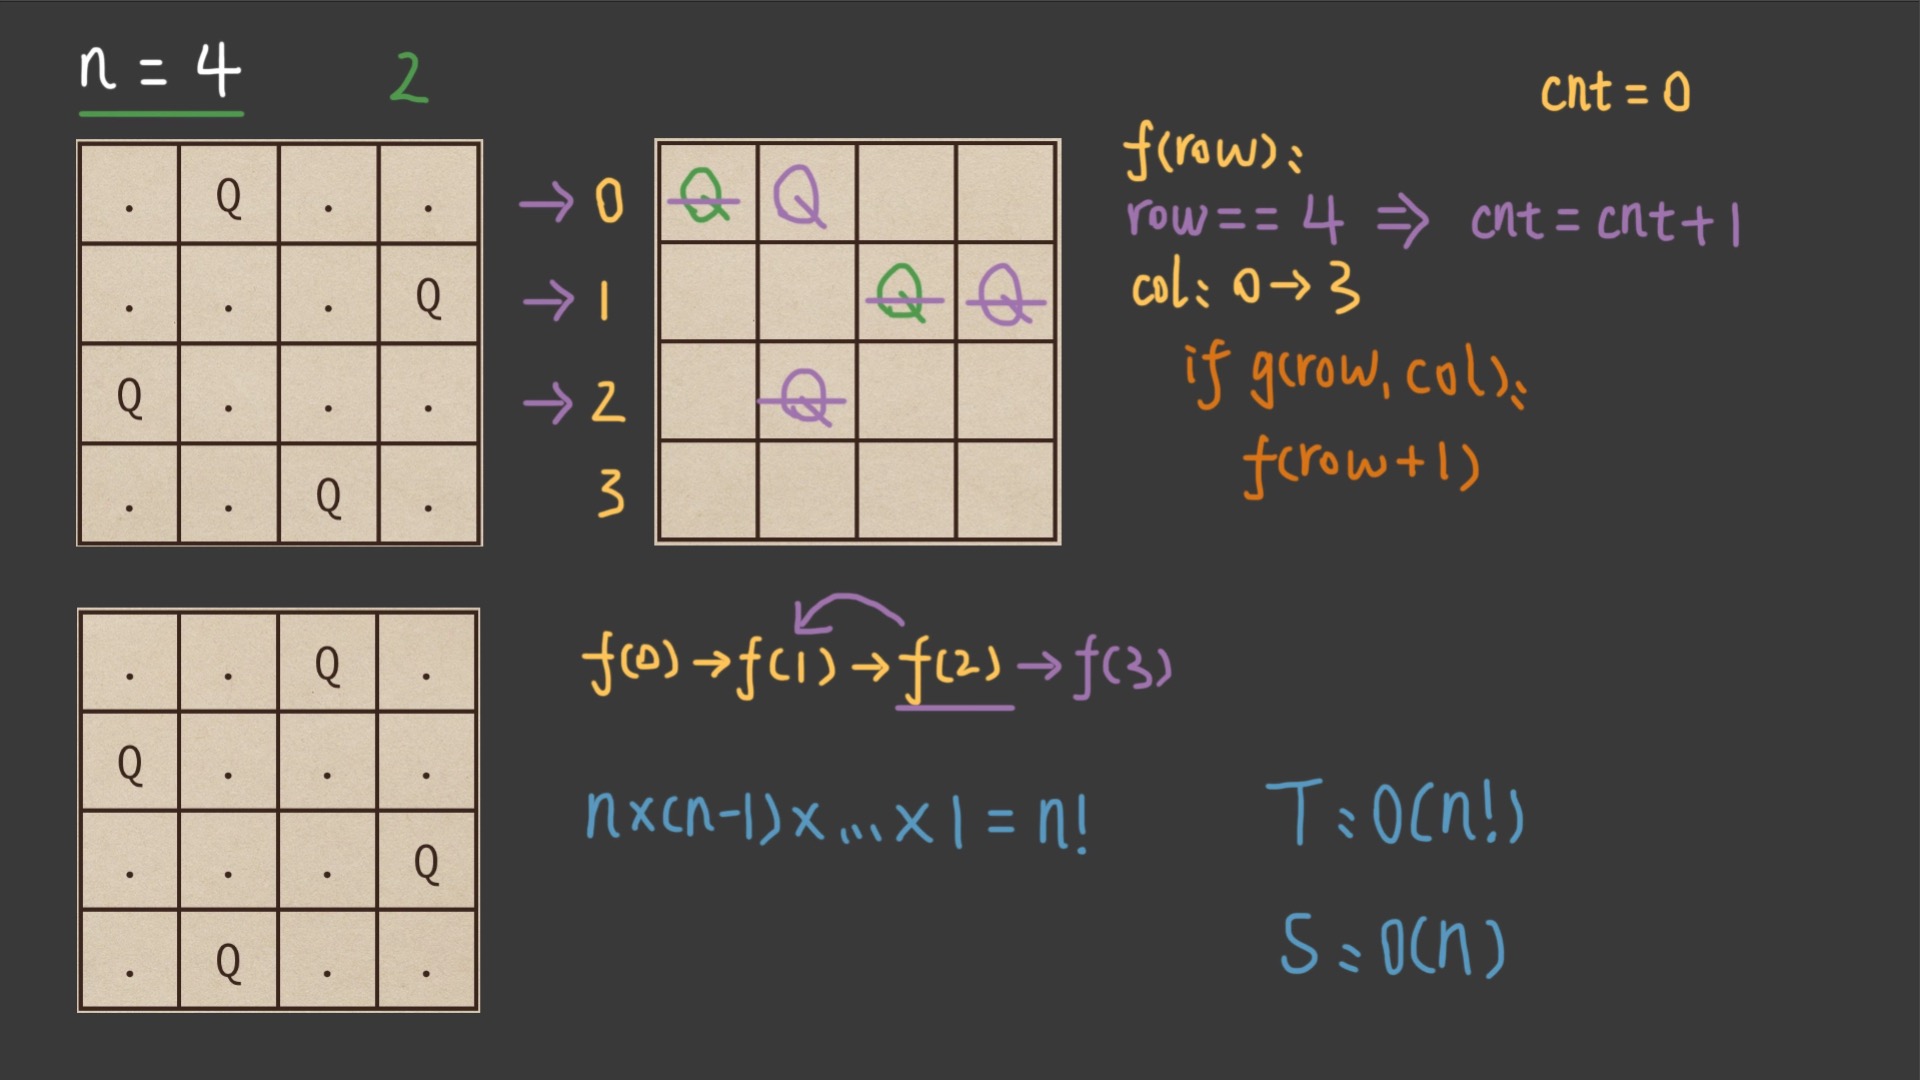 n = 4
2
cnt = 0
. Q . .
. . . Q
Q . . .
. . Q .
→ 0
→ 1
→ 2
3
Q Q
Q Q
Q
f(row):
row == 4 ⇒ cnt = cnt + 1
col: 0 → 3
if g(row, col):
f(row+1)
. . Q .
Q . . .
. . . Q
. Q . .
f(0) → f(1) → f(2) → f(3)
n×(n-1)×...×1 = n!
T: O(n!)
S: O(n)